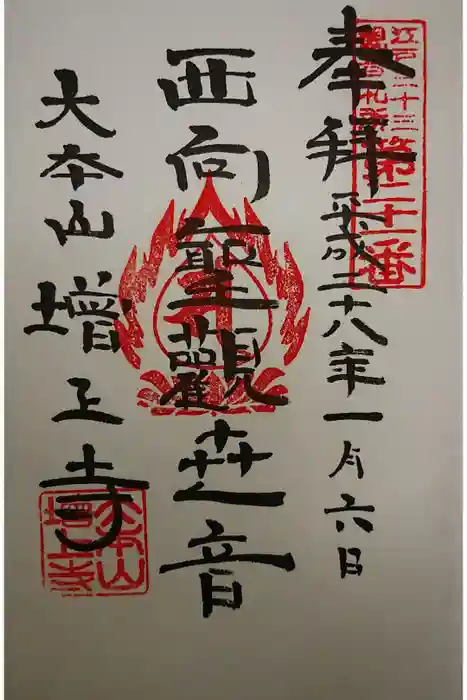 江戸三十三
観音札所
第二十一番
奉拝
平成二十八年一月六日
西向聖觀世音
大本山
増上寺
大本山
増上寺